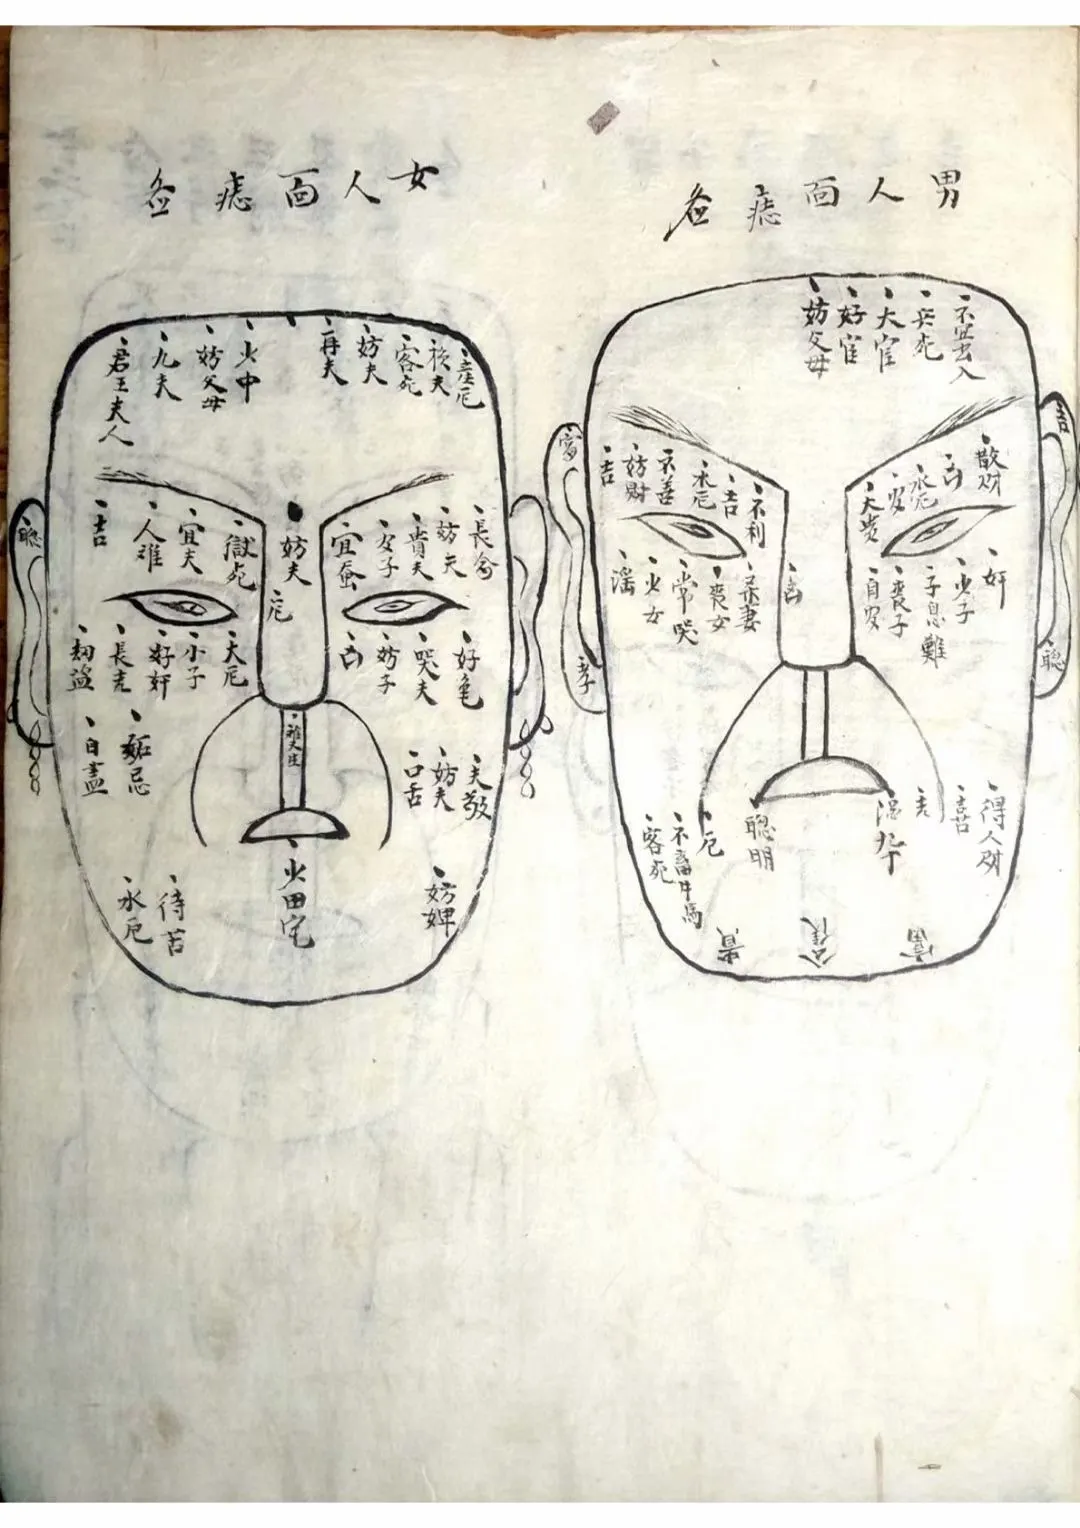 男人面痣啚
不宜出入
兵死
大官
好官
妨父母
散財
凶
水厄
大貴
不利
吉
水厄
不善
妨財
吉
奸
少子
子息難
喪子
自安
吉
妻
喪女
常哭
少女
淫
富
孝
聰
得人財
聰明
厄
不畜牛馬
客死
富
貴
女人面痣啚
產厄
客死
妨夫
再夫
火中
妨父母
九夫
君王夫人
長命
妨夫
貴夫
子
宜蚕
妨夫
厄
獄死
宜夫
人难
吉
聰
好色
哭夫
妨子
凶
大厄
小子
好奸
長吉
劫盜
妬忌
自盡
夫敬
妨夫
口舌
少田宅
妨婢
待苦
水厄